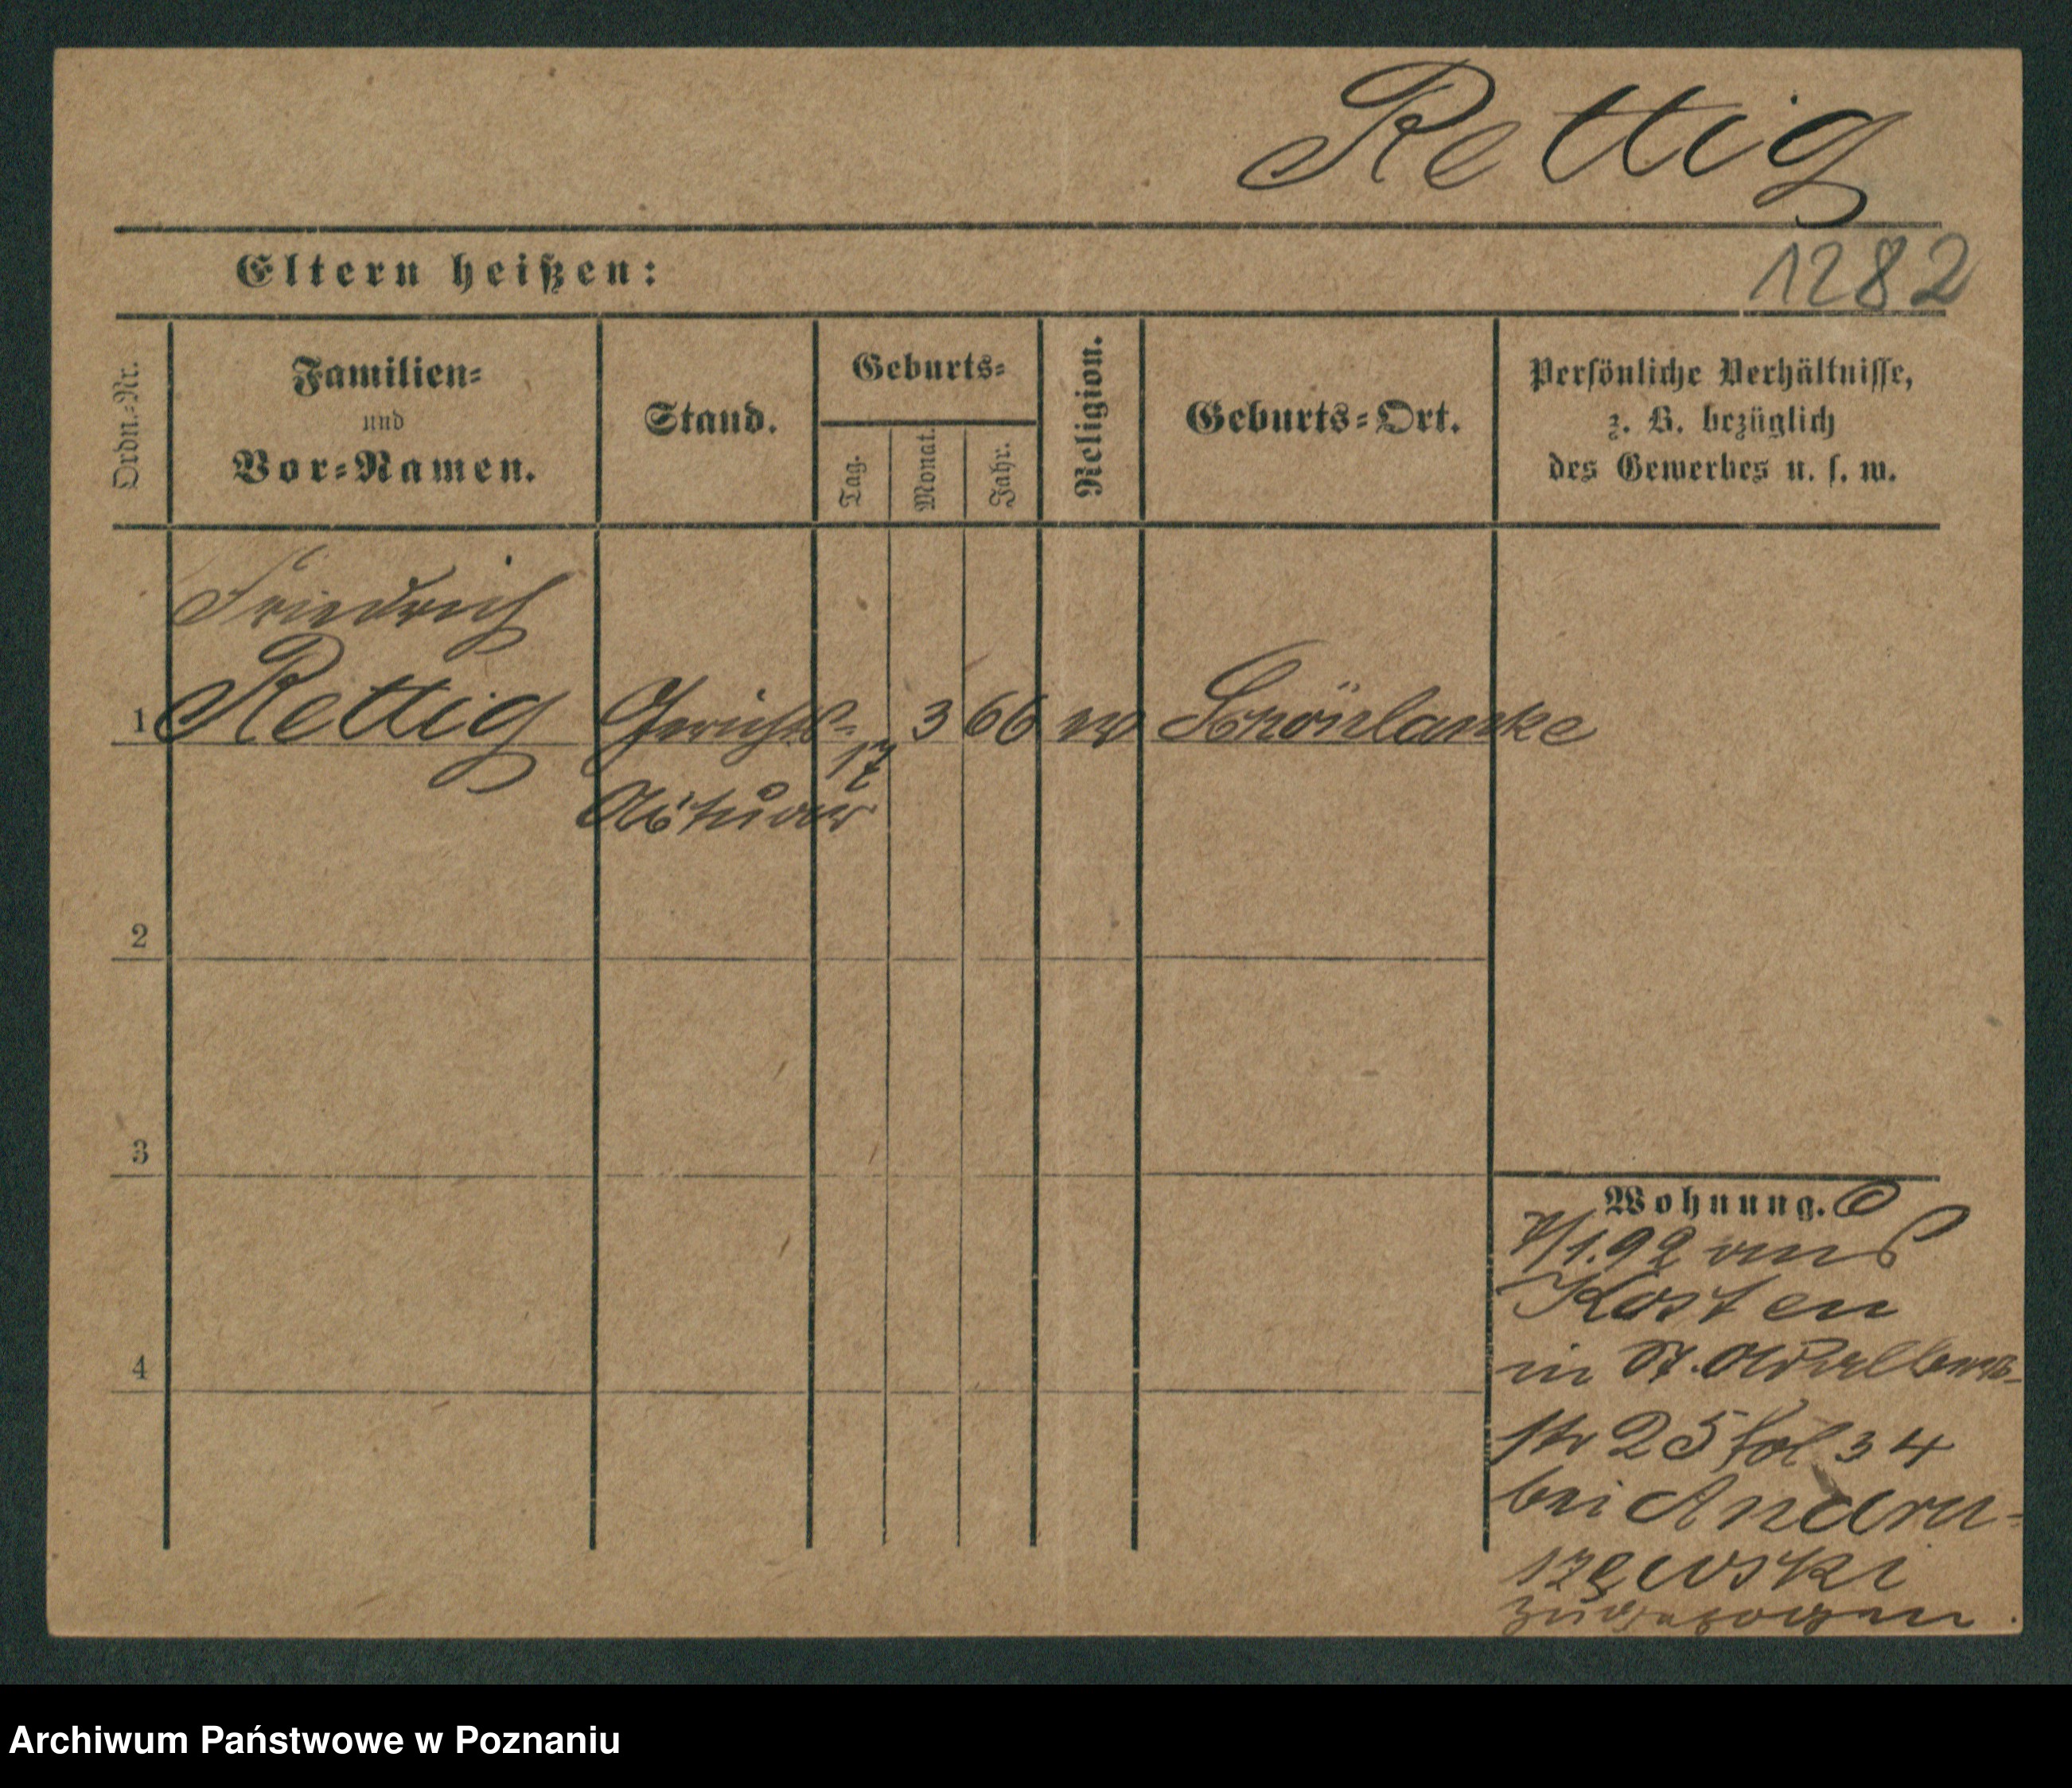 Rettig
Eltern heißen:
1282
Ordn.-Nr.
Familien-
und
Vor-Namen.
Stand.
Geburts-
Tag.
Monat.
Jahr.
Religion.
Geburts-Ort.
Persönliche Verhältnisse,
z. B. bezüglich
des Gewerbes u. s. w.
Friedrich
1 Rettig Gerichts- 17 3 66 ev Schönlanke
Aktuar
2
3
Wohnung.
/1.92 aus
Kosten
4
in St. Adalbert-
str 25 fol 34
bei Andru-
szewski
zugezogen.
Archiwum Państwowe w Poznaniu